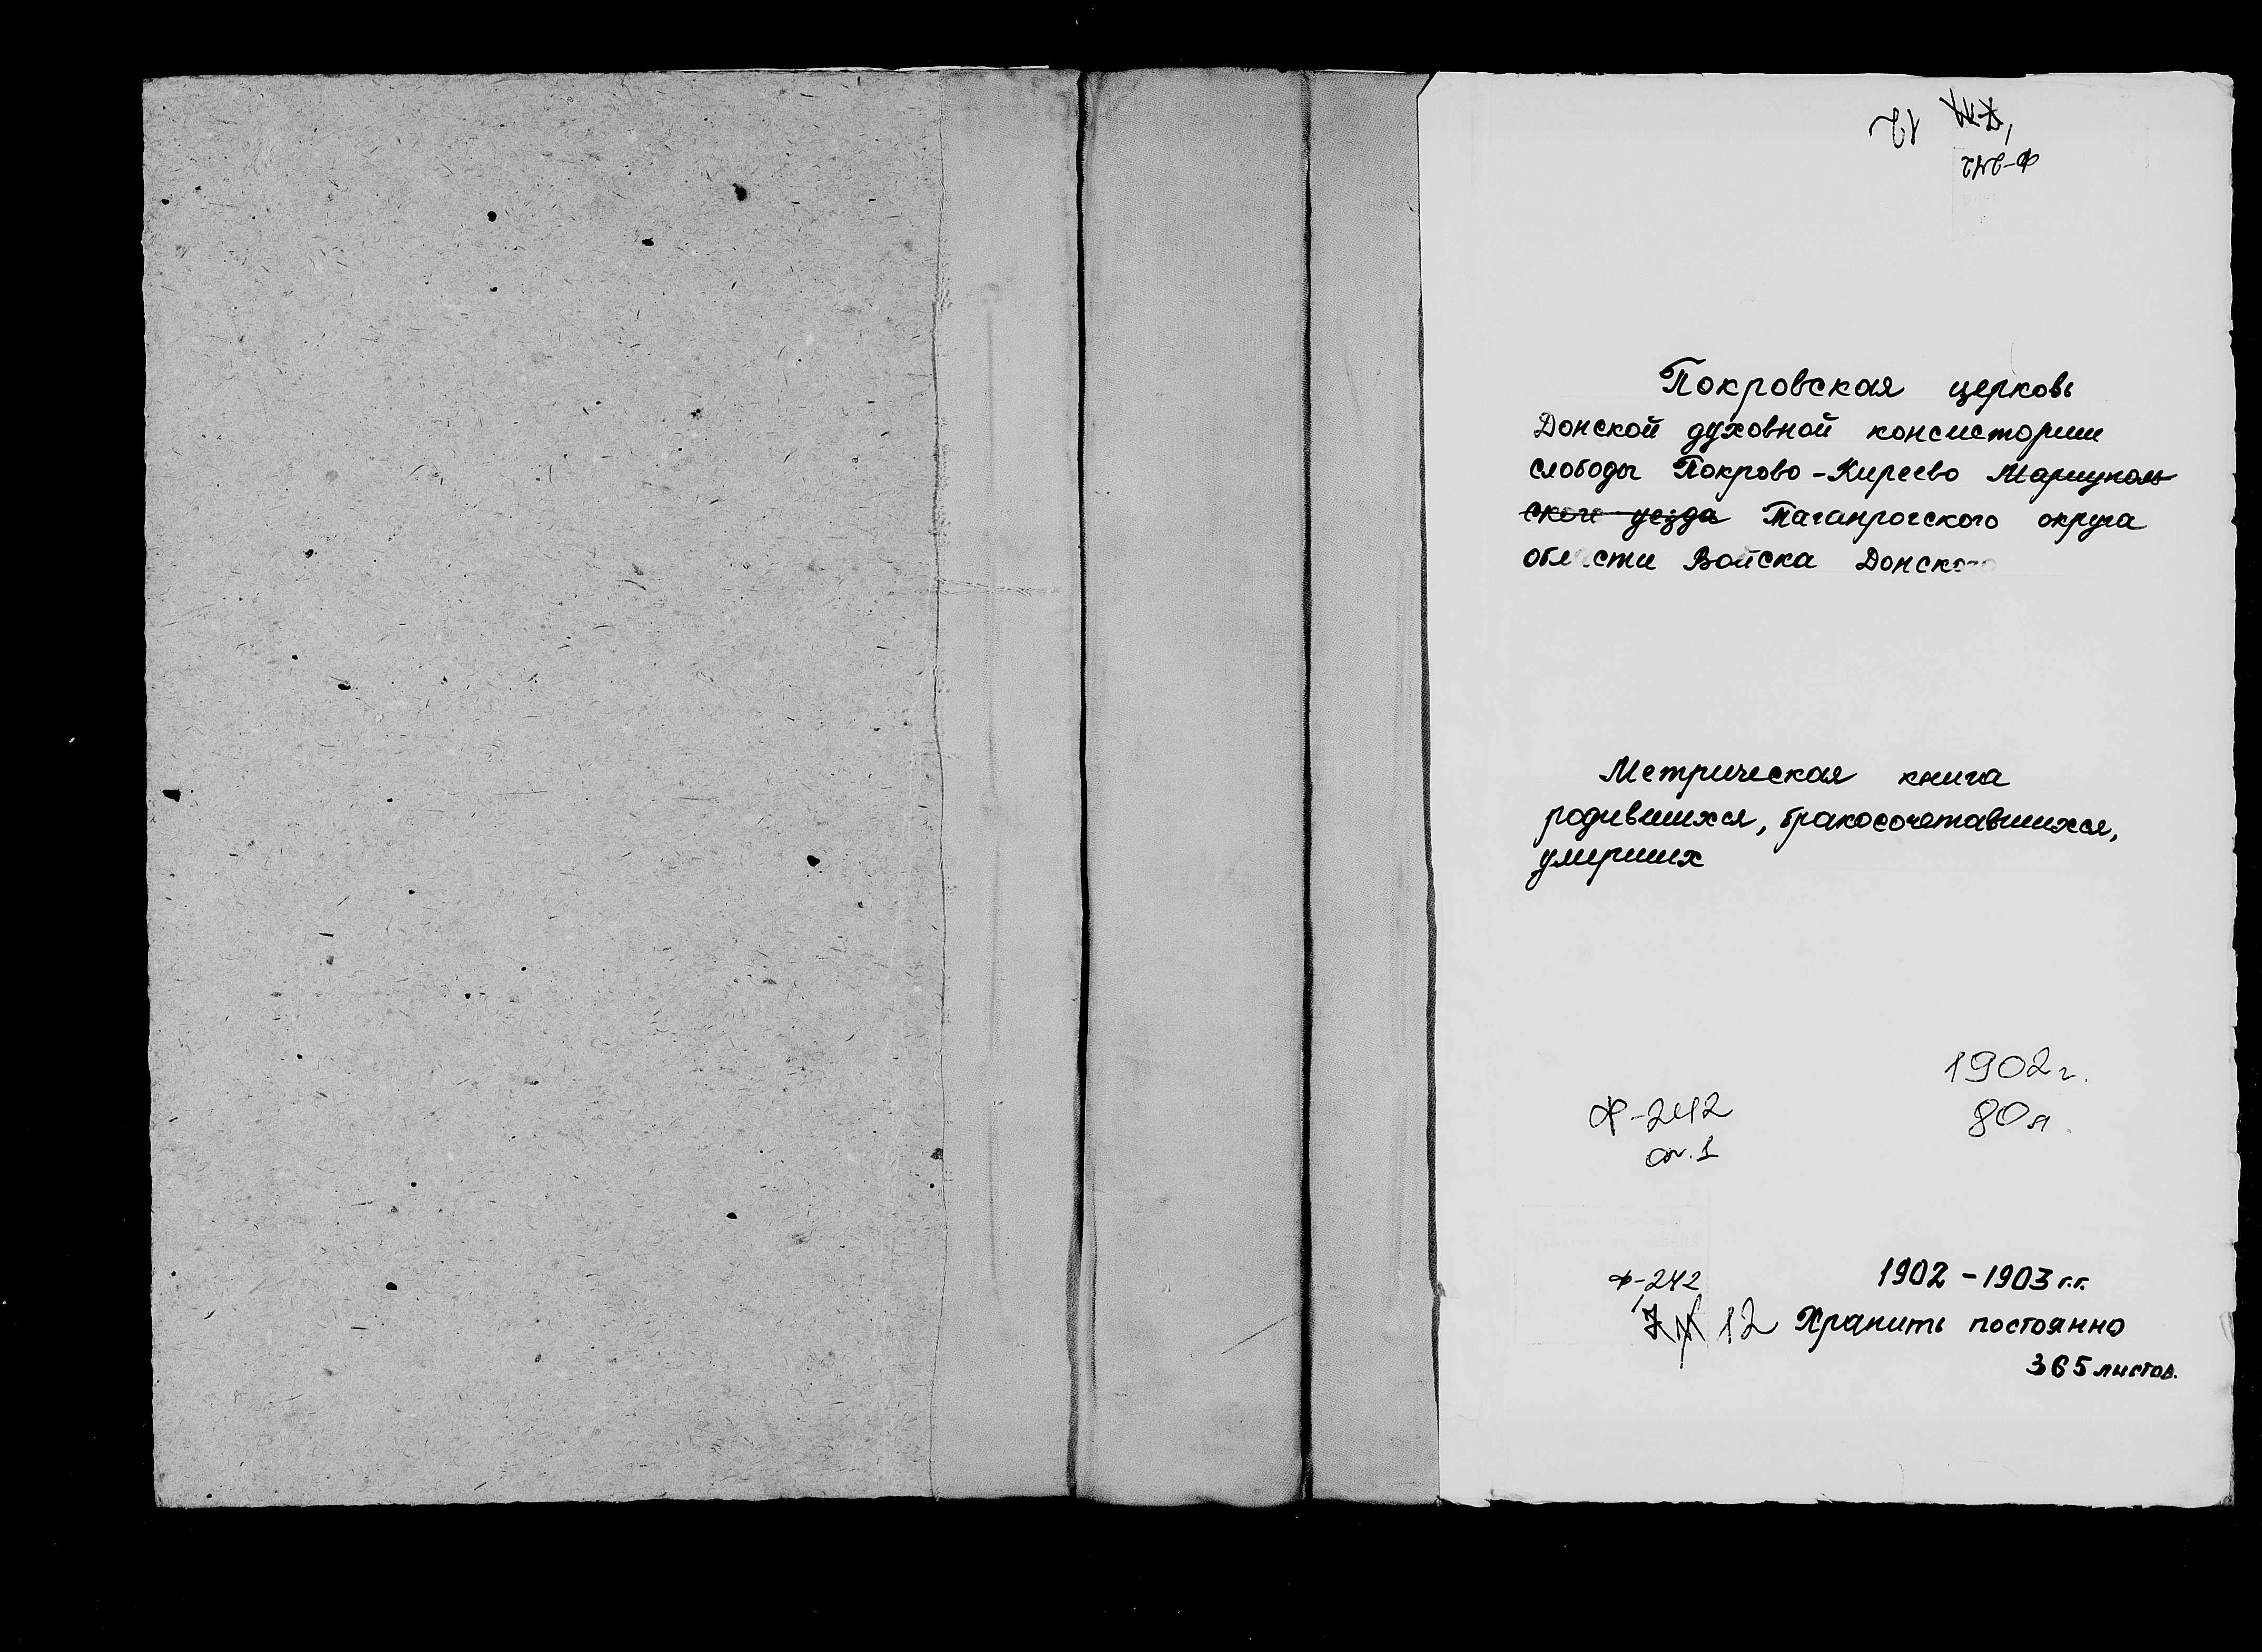 12
Ф-242
Покровская церковь
Донской духовной консистории
слободы Покрово-Киреево Мариуполь
ского уезда Таганрогского округа
области Войска Донского
Метрическая книга
родившихся, бракосочетавшихся,
умерших
1902 г.
Ф-242 80 л
оп. 1
Ф-242 1902-1903 г.г.
12 Хранить постоянно
365 листов.